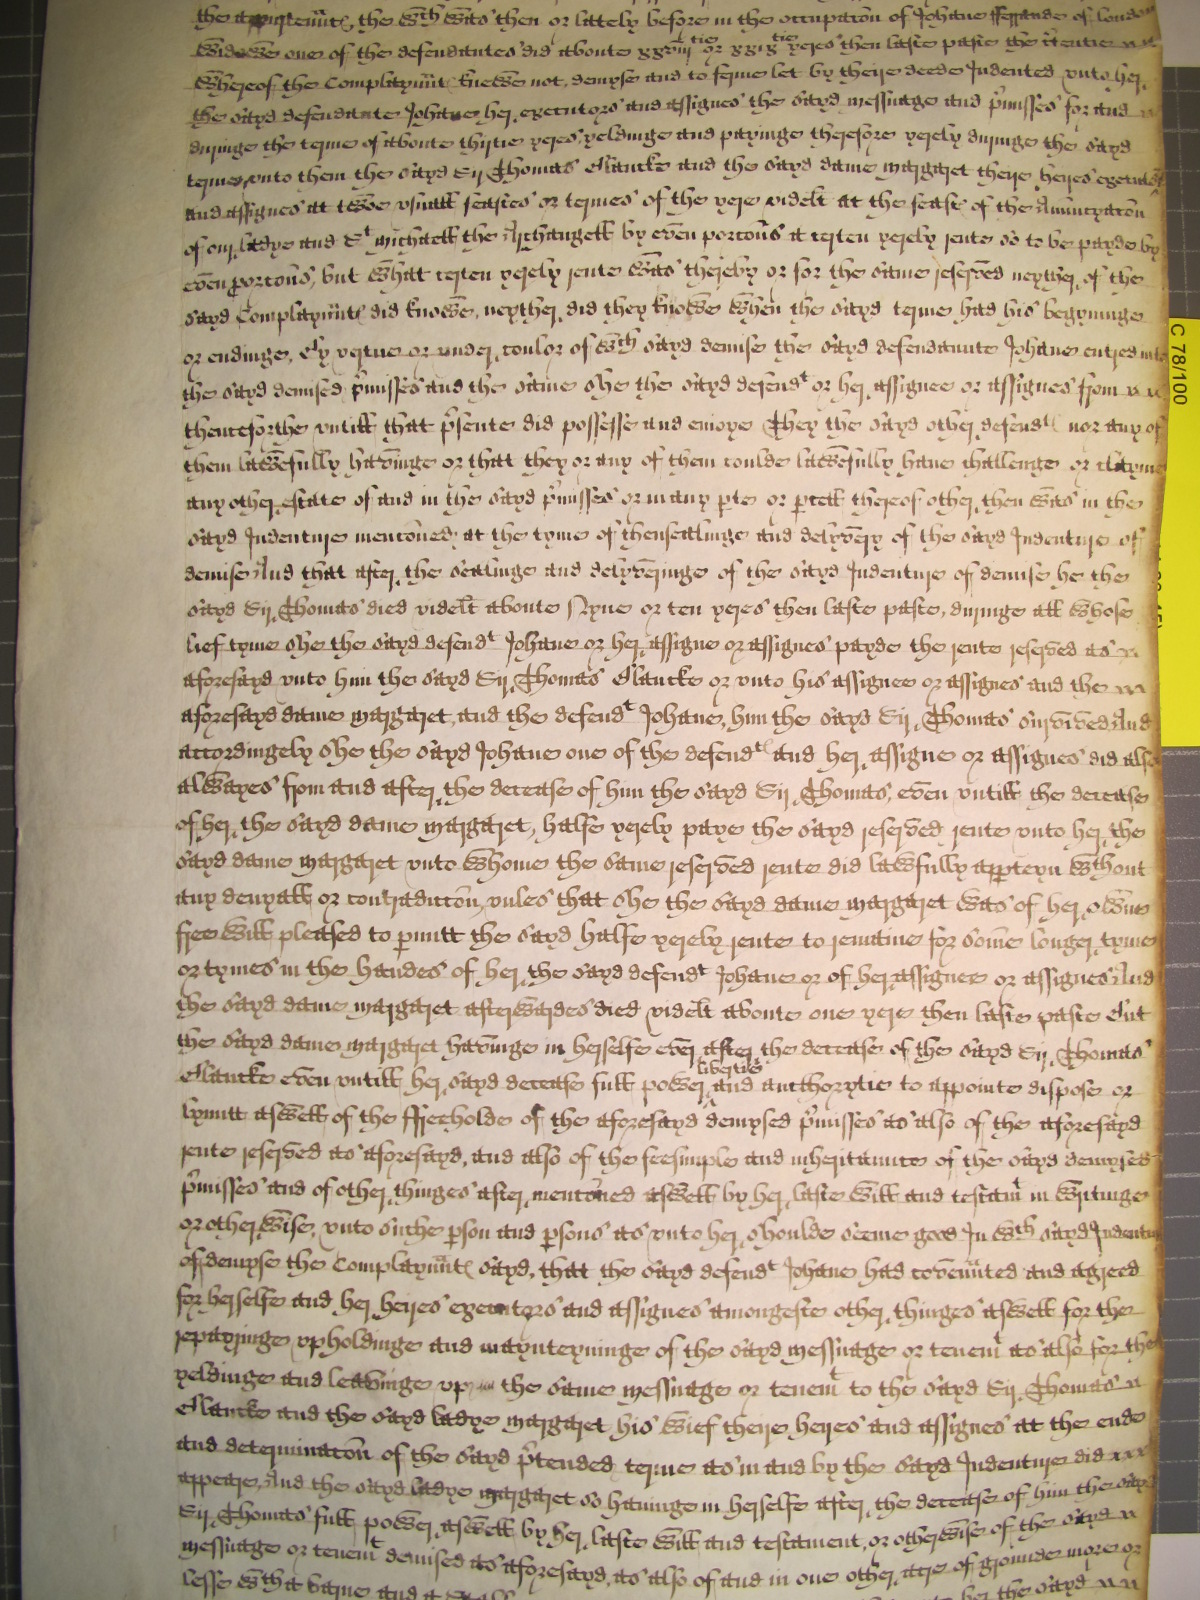 the apurtenn̄tℯ, the wch was then or lattely before in the occupac̄on of Johane fferrande of london
Widowe one of the defendantes did aboute xxviijtie or xxixtie yeres then laste paste the certentie
Whereof the Complaynn̄tℯ knewe not, demyse and to ferme let by theire deede Indented vnto her
the sayd defendante Johane her executors and assignes the sayd messuage and p̄misses for and
duringe the terme of aboute thirtie yeres, yeldinge and payinge therefore yerely duringe the sayd
terme, vnto them the sayd Sir Thomas Blancke and the sayd dame margaret theire heires executors
and assignes at twoe vsuall feastes or termes of the yere videlt at the feast of the Annunciac̄on
of our ladye and St michaell the Archangell by even porc̄ons a certen yerely rente so to be payde by
even porc̄ons, but what certen yerely rente was thereby or for the same reserved neyther of the
sayd Complaynn̄tℯ did knowe, neyther did they knowe when the sayd terme had his begynninge
or endinge, By vertue or under coulor of wch sayd demise the sayd defendannte Johane entred into
the sayd demised p̄misses and the same she the sayd defendt or her assignee or assignes from
thenceforthe vntill that p̄sente did possesse and enioye They the sayd other defendtℯ nor any of
them lawefully havinge or that they or any of them coulde lawefully haue challenge or clayme
any other estate of and in the sayd p̄misses or in any pte or pcell thereof other then was in the
sayd Indenture menc̄oned at the tyme of thensealinge and delyvery of the sayd Indenture of
demise And that after the sealinge and delyveringe of the sayd Indenture of demise he the
sayd Sir Thomas died videlt aboute Nyne or ten yeres then laste paste, duringe all whose
lief tyme she the sayd defendt Johane or her assigne or assignes payde the rente reserved as
aforesayd vnto him the sayd Sir Thomas Blancke or vnto his assignee or assignes and the
aforesayd dame margaret, and the defendt Johane, him the sayd Sir Thomas survived And
accordingely she the sayd Johane one of the defendtℯ and her assigne or assignes did also
alwayes from and after the decease of him the sayd Sir Thomas, even vntill the decease
of her the sayd dame margaret, halfe yerely paye the sayd reserved rente vnto her the
sayd dame margaret vnto whome the same reserved rente did lawfully apperteyn wthout
any denyall or contradicc̄on, vnles that she the sayd dame margaret was of her owne
free will pleased to pmitt the sayd halfe yerely rente to remaine for some longer tyme
or tymes in the handes of her the sayd defendt Johane or of her assignee or assignes And
the sayd dame margaret afterwardes died videlt aboute one yere then laste paste But
the sayd dame margaret havinge in herselfe ever after the decease of the sayd Sir Thomas
Blancke even vntill her sayd decease full power libertie and authorytie to appointe dispose or
lymitt aswell of the ffreeholde of the aforesayd demysed p̄misses as also of the aforesayd
rente reserved as aforesayd, and also of the feesimple and inheritannce of the sayd demysed
p̄misses and of other thinges after menc̄oned aswell by her laste will and testamt in writinge
or otherwise, vnto suche pson and psons as vnto her shoulde seeme good In wch sayd Indenture
of demyse the Complaynn̄tℯ sayd, that the sayd defendt Johane had covennted and agreed
for herselfe and her heires executors and assignes amongeste other thinges aswell for the
repayringe vpholdinge and maynteyninge of the sayd messuage or tenemt as also for the
yeldinge and leavinge vp the same messuage or tenemt to the sayd Sir Thomas
Blancke and the sayd ladye margaret his wief theire heyres and assignes at the ende
and determinac̄on of the sayd p̄tended terme as in and by the sayd Indenture did
appeare, And the sayd ladye margaret so havinge in herselfe after the decease of him the sayd
Sir Thomas full power aswell by her laste will and testament, or otherwise of the sayd
messuage or tenemt demised as aforesayd, as also of and in one other acre of grounde more or
lesse wth a barne and a
C 78/100